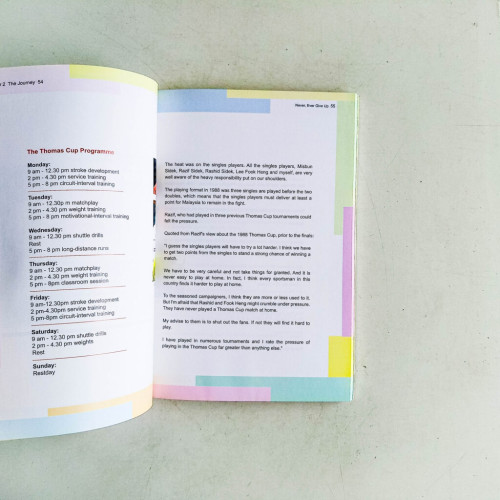 2 The Journey 54
The Thomas Cup Programme
Monday:
9 am - 12.30 pm stroke development
2 pm - 4.30 pm service training
5 pm - 8 pm circuit-interval training
Tuesday:
9 am - 12.30p m matchplay
2 pm - 4.30 pm weight training
5 pm - 8 pm motivational-interval training
Wednesday:
9 am - 12.30 pm shuttle drills
Rest
5 pm - 8 pm long-distance runs
Thursday:
9 am - 12.30 pm matchplay
2 pm - 4.30 pm weight training
5 pm - 8pm classroom session
Friday:
9 am-12.30pm stroke development
2 pm-4.30pm service training
5 pm-8pm circuit-interval training
Saturday:
9 am - 12.30 pm shuttle drills
2 pm - 4.30 pm weights
Rest
Sunday:
Restday
Never, Ever Give Up 55
The heat was on the singles players. All the singles players, Misbun
Sidek, Razif Sidek, Rashid Sidek, Lee Fook Heng and myself, are very
well aware of the heavy responsibility put on our shoulders.
The playing format in 1988 was three singles are played before the two
doubles, which means that the singles players must deliver at least a
point for Malaysia to remain in the fight.
Razif, who had played in three previous Thomas Cup tournaments could
tell the pressure.
Quoted from Razif's view about the 1988 Thomas Cup, prior to the finals:
"I guess the singles players will have to try a lot harder. I think we have
to get two points from the singles to stand a strong chance of winning a
match.
We have to be very careful and not take things for granted. And it is
never easy to play at home. In fact, I think every sportsman in this
country finds it harder to play at home.
To the seasoned campaigners, I think they are more or less used to it.
But I'm afraid that Rashid and Fook Heng might crumble under pressure.
They have never played a Thomas Cup match at home.
My advise to them is to shut out the fans. If not they will find it hard to
play.
I have played in numerous tournaments and I rate the pressure of
playing in the Thomas Cup far greater than anything else."